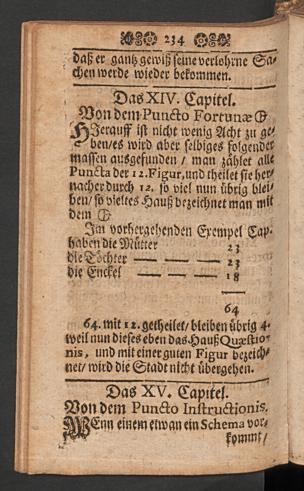 234
daß er gantz gewiß seine verlohrne Sa-
chen werde wieder bekommen.
Das XIV. Capitel.
Von dem Puncto Fortunæ ⊕
HJerauff ist nicht wenig Acht zu ge-
ben/ es wird aber selbiges folgender
massen ausgefunden / man zählet alle
Puncta der 12. Figur, und theilet sie her-
nacher durch 12. so viel nun übrig blei-
ben/ so vieltes Hauß bezeichnet man mit
dem ⊕
Im vorhergehenden Exempel Cap.
haben die Mütter 23
die Töchter — — — 23
die Enckel — — — 18
64
64. mit 12. getheilet/ bleiben übrig 4.
weil nun dieses eben das Hauß Quæstio-
nis, und mit einer guten Figur bezeich-
net/ wird die Stadt nicht übergehen.
Das XV. Capitel.
Von dem Puncto Instructionis.
WEnn einem etwan ein Schema vor-
kommt/